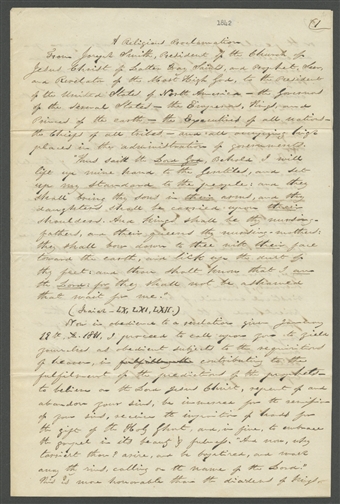 1842
A Religious Proclamation
From Joseph Smith, President of the Church of
Jesus Christ of Latter Day Saints, and Prophet, Seer,
and Revelator of the Most High God, to the President
of the United States of North America – the Governors
of the several States – the Emperors, Kings, and
Princes of the earth – the Executives of all nations –
the Chiefs of all tribes – and all occupying high
places in the administration of governments.
Thus saith the Lord God, Behold I will
lift up mine hand to the Gentiles, and set
up my standard to the people; and they
shall bring thy sons in their arms, and thy
daughters shall be carried upon their
shoulders. And kings shall be thy nursing-
fathers, and their queens thy nursing-mothers:
they shall bow down to thee with their face
toward the earth, and lick up the dust of
thy feet: and thou shalt know that I am
the Lord: for they shall not be ashamed
that wait for me."
Now in obedience to a revelation given January
19th A.D. 1841, I proceed to call upon you to yield
yourselves as obedient subjects to the requisitions
of heaven, in contributing to the
fulfilment of the predictions of the prophets –
to believe on the Lord Jesus Christ, repent of and
abandon your sins, be immersed for the remission
of your sins, receive the imposition of hands for
the gift of the Holy Ghost, and, in fine, to embrace
the gospel in its being & fulness. And now, why
tarriest thou? arise, and be baptized, and wash
away thy sins, calling on the name of the Lord.
This is more honorable than the diadems of Kings –